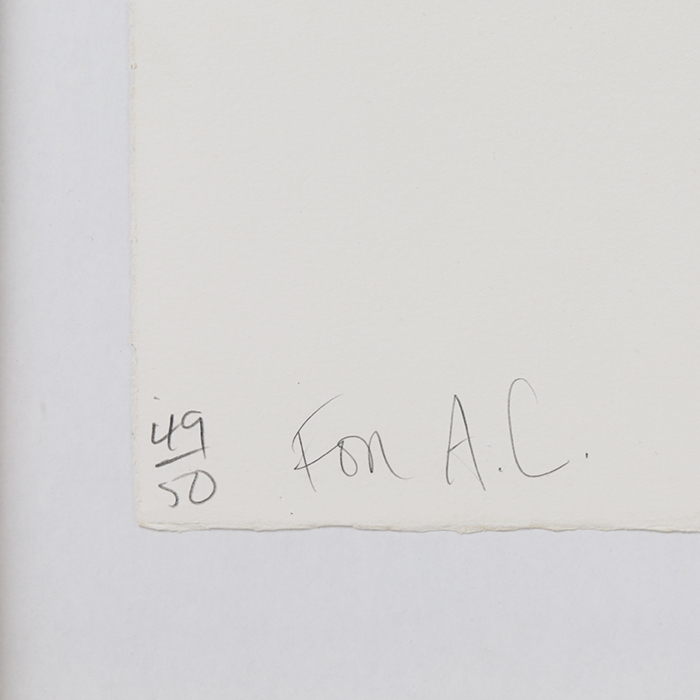 49/50 For A.C.